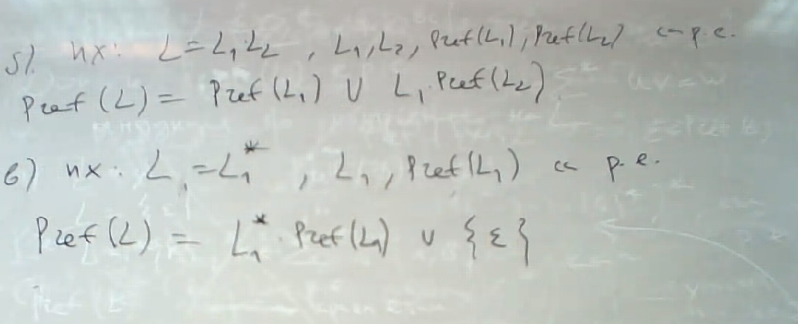 5). ИХ: L = L₁.L₂ , L₁, L₂, Pref(L₁), Pref(L₂) са р.е.
Pref (L) = Pref (L₁) ∪ L₁.Pref(L₂)
в) ИХ: L = L₁* , L₁, Pref(L₁) са р.е.
Pref(L) = L₁* . Pref(L₁) ∪ {ε}